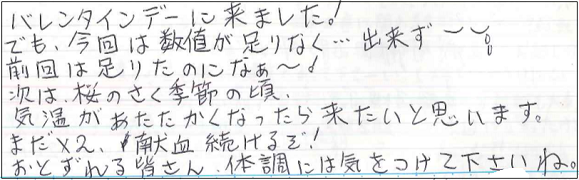 バレンタインデーに来ました!
でも、今回は数値が足りなく…出来ず
前回は足りたのになぁ〜!
次は、桜のさく季節の頃、
気温があたたかくなったら来たいと思います。
まだ×2、献血続けるぞ!
おとずれる皆さん、体調には気をつけて下さいね。